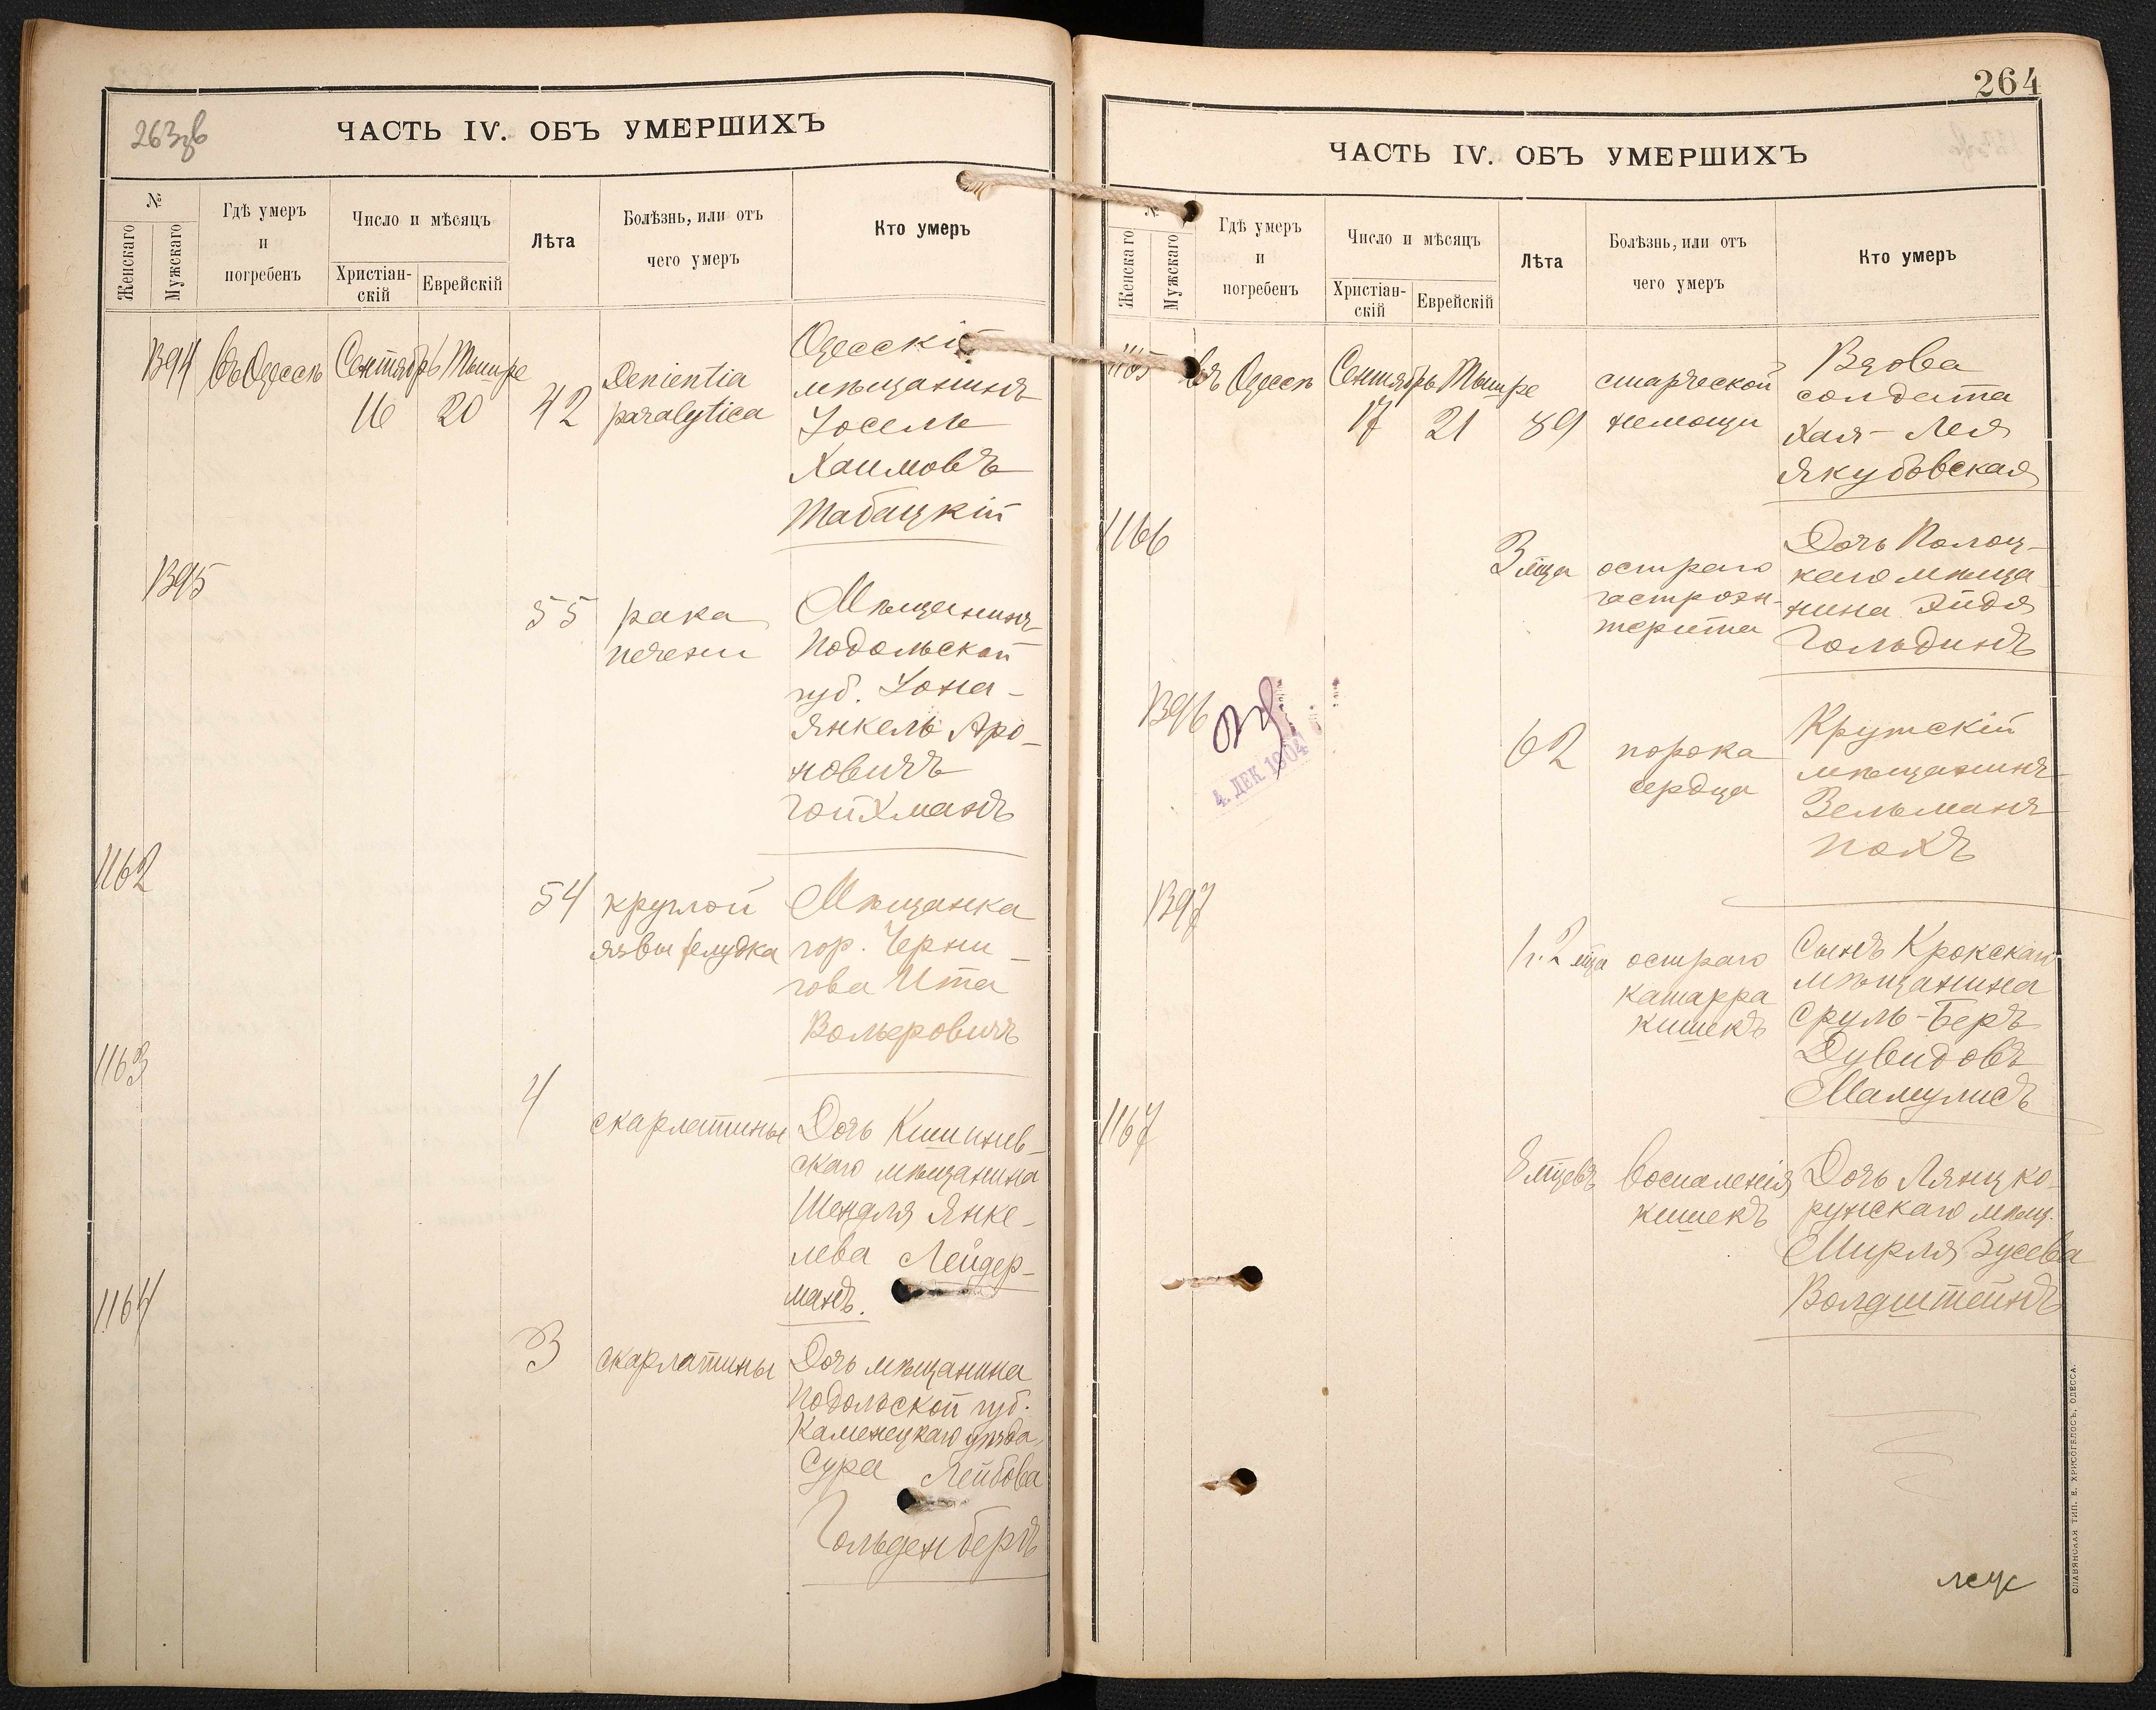 263зв
ЧАСТЬ IV. ОБЪ УМЕРШИХЪ
№
Женскаго
Мужскаго
Гдѣ умеръ
и
погребенъ
Число и мѣсяцъ
Христіан-
скій
Еврейскій
Лѣта
Болѣзнь, или отъ
чего умеръ
Кто умеръ
1394
Въ Одессѣ
Сентябрь
16
Тишре
20
42
Demientia
paralytica
Одесскій
мѣщанинъ
Іосель
Хаимовъ
Табацкій
1395
55
рака
печени
Мѣщанинъ
Подольской
губ. Іона-
Янкель Аро-
новичъ
Гойхманъ
1162
54
круглой
язвы желудка
Мѣщанка
гор. Черни-
гова Ита
Вольеровичъ
1163
4
скарлатины
Дочь Кишинев-
скаго мѣщанина
Шендля Янке-
лева Лейдер-
манъ.
1164
3
скарлатины
Дочь мѣщанина
Подольской губ.
Каменецкаго уѣзда
Сура Лейбова
Гольденбергъ
264
ЧАСТЬ IV. ОБЪ УМЕРШИХЪ
№
Женскаго
Мужскаго
Гдѣ умеръ
и
погребенъ
Число и мѣсяцъ
Христіан-
скій
Еврейскій
Лѣта
Болѣзнь, или отъ
чего умеръ
Кто умеръ
1165
Въ Одессѣ
Сентябрь
17
Тишре
21
89
старческой
немощи
Вдова
солдата
Хая-Лея
Якубовская
1166
3 мца
остраго
гастроэн-
терита
Дочь Полоц-
каго мѣща
нина Эйдя
Гольдинъ
1396
4. ДЕК. 1904
62
порока
сердца
Крутскій
мѣщанинъ
Зельманъ
Покъ
1397
1 г. 2 мца
остраго
катарра
кишекъ
Сынъ Крокскаго
мѣщанина
Сруль-Беръ
Дувидовъ
Мамулисъ
1167
8 мцевъ
воспаленія
кишекъ
Дочь Лянцко-
рунскаго мѣщ.
Мирля Зусева
Волдштейнъ
СЛАВЯНСКАЯ ТИП. Е. ХРИСОГЕЛОСЪ, ОДЕССА.